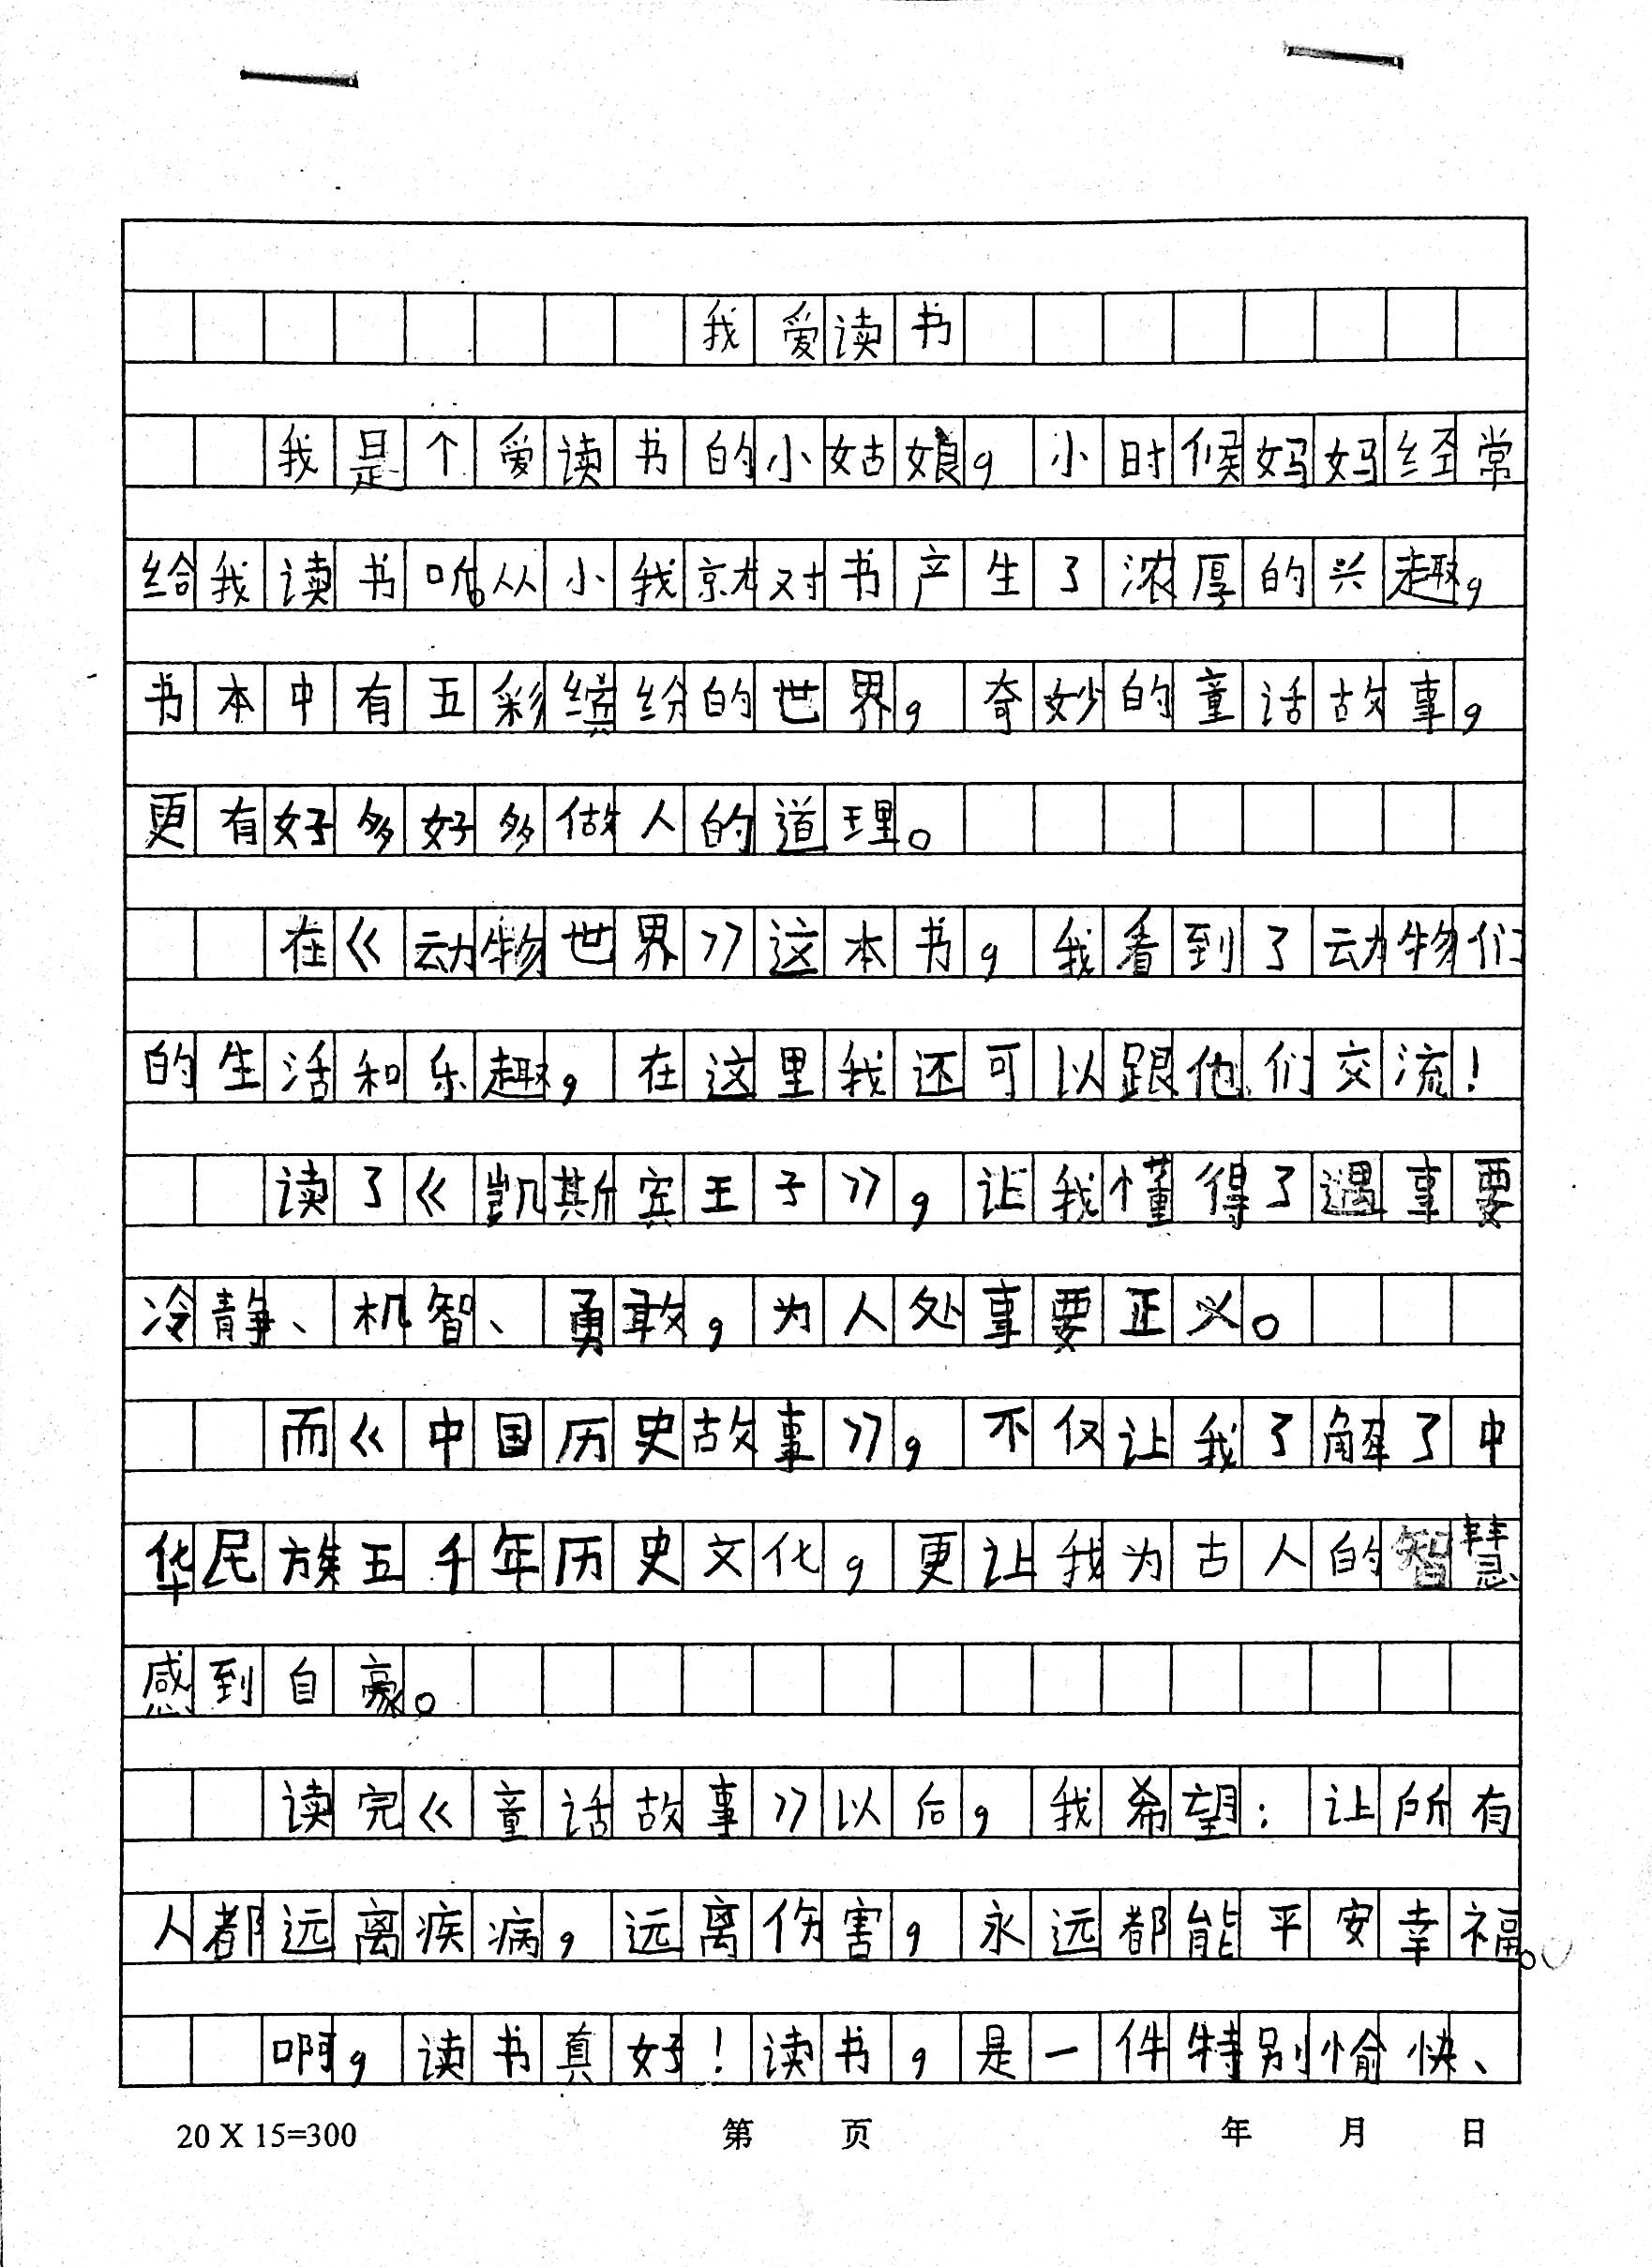 我爱读书
我是个爱读书的小姑娘，小时候妈妈经常
给我读书听。从小我就对书产生了浓厚的兴趣，
书本中有五彩缤纷的世界，奇妙的童话故事，
更有好多好多做人的道理。
在《动物世界》这本书，我看到了动物们
的生活和乐趣，在这里我还可以跟他们交流！
读了《凯斯宾王子》，让我懂得了遇事要
冷静、机智、勇敢，为人处事要正义。
而《中国历史故事》，不仅让我了解了中
华民族五千年历史文化，更让我为古人的智慧
感到自豪。
读完《童话故事》以后，我希望：让所有
人都远离疾病，远离伤害，永远都能平安幸福。
啊，读书真好！读书，是一件特别愉快、
20 X 15=300 第 页 年 月 日